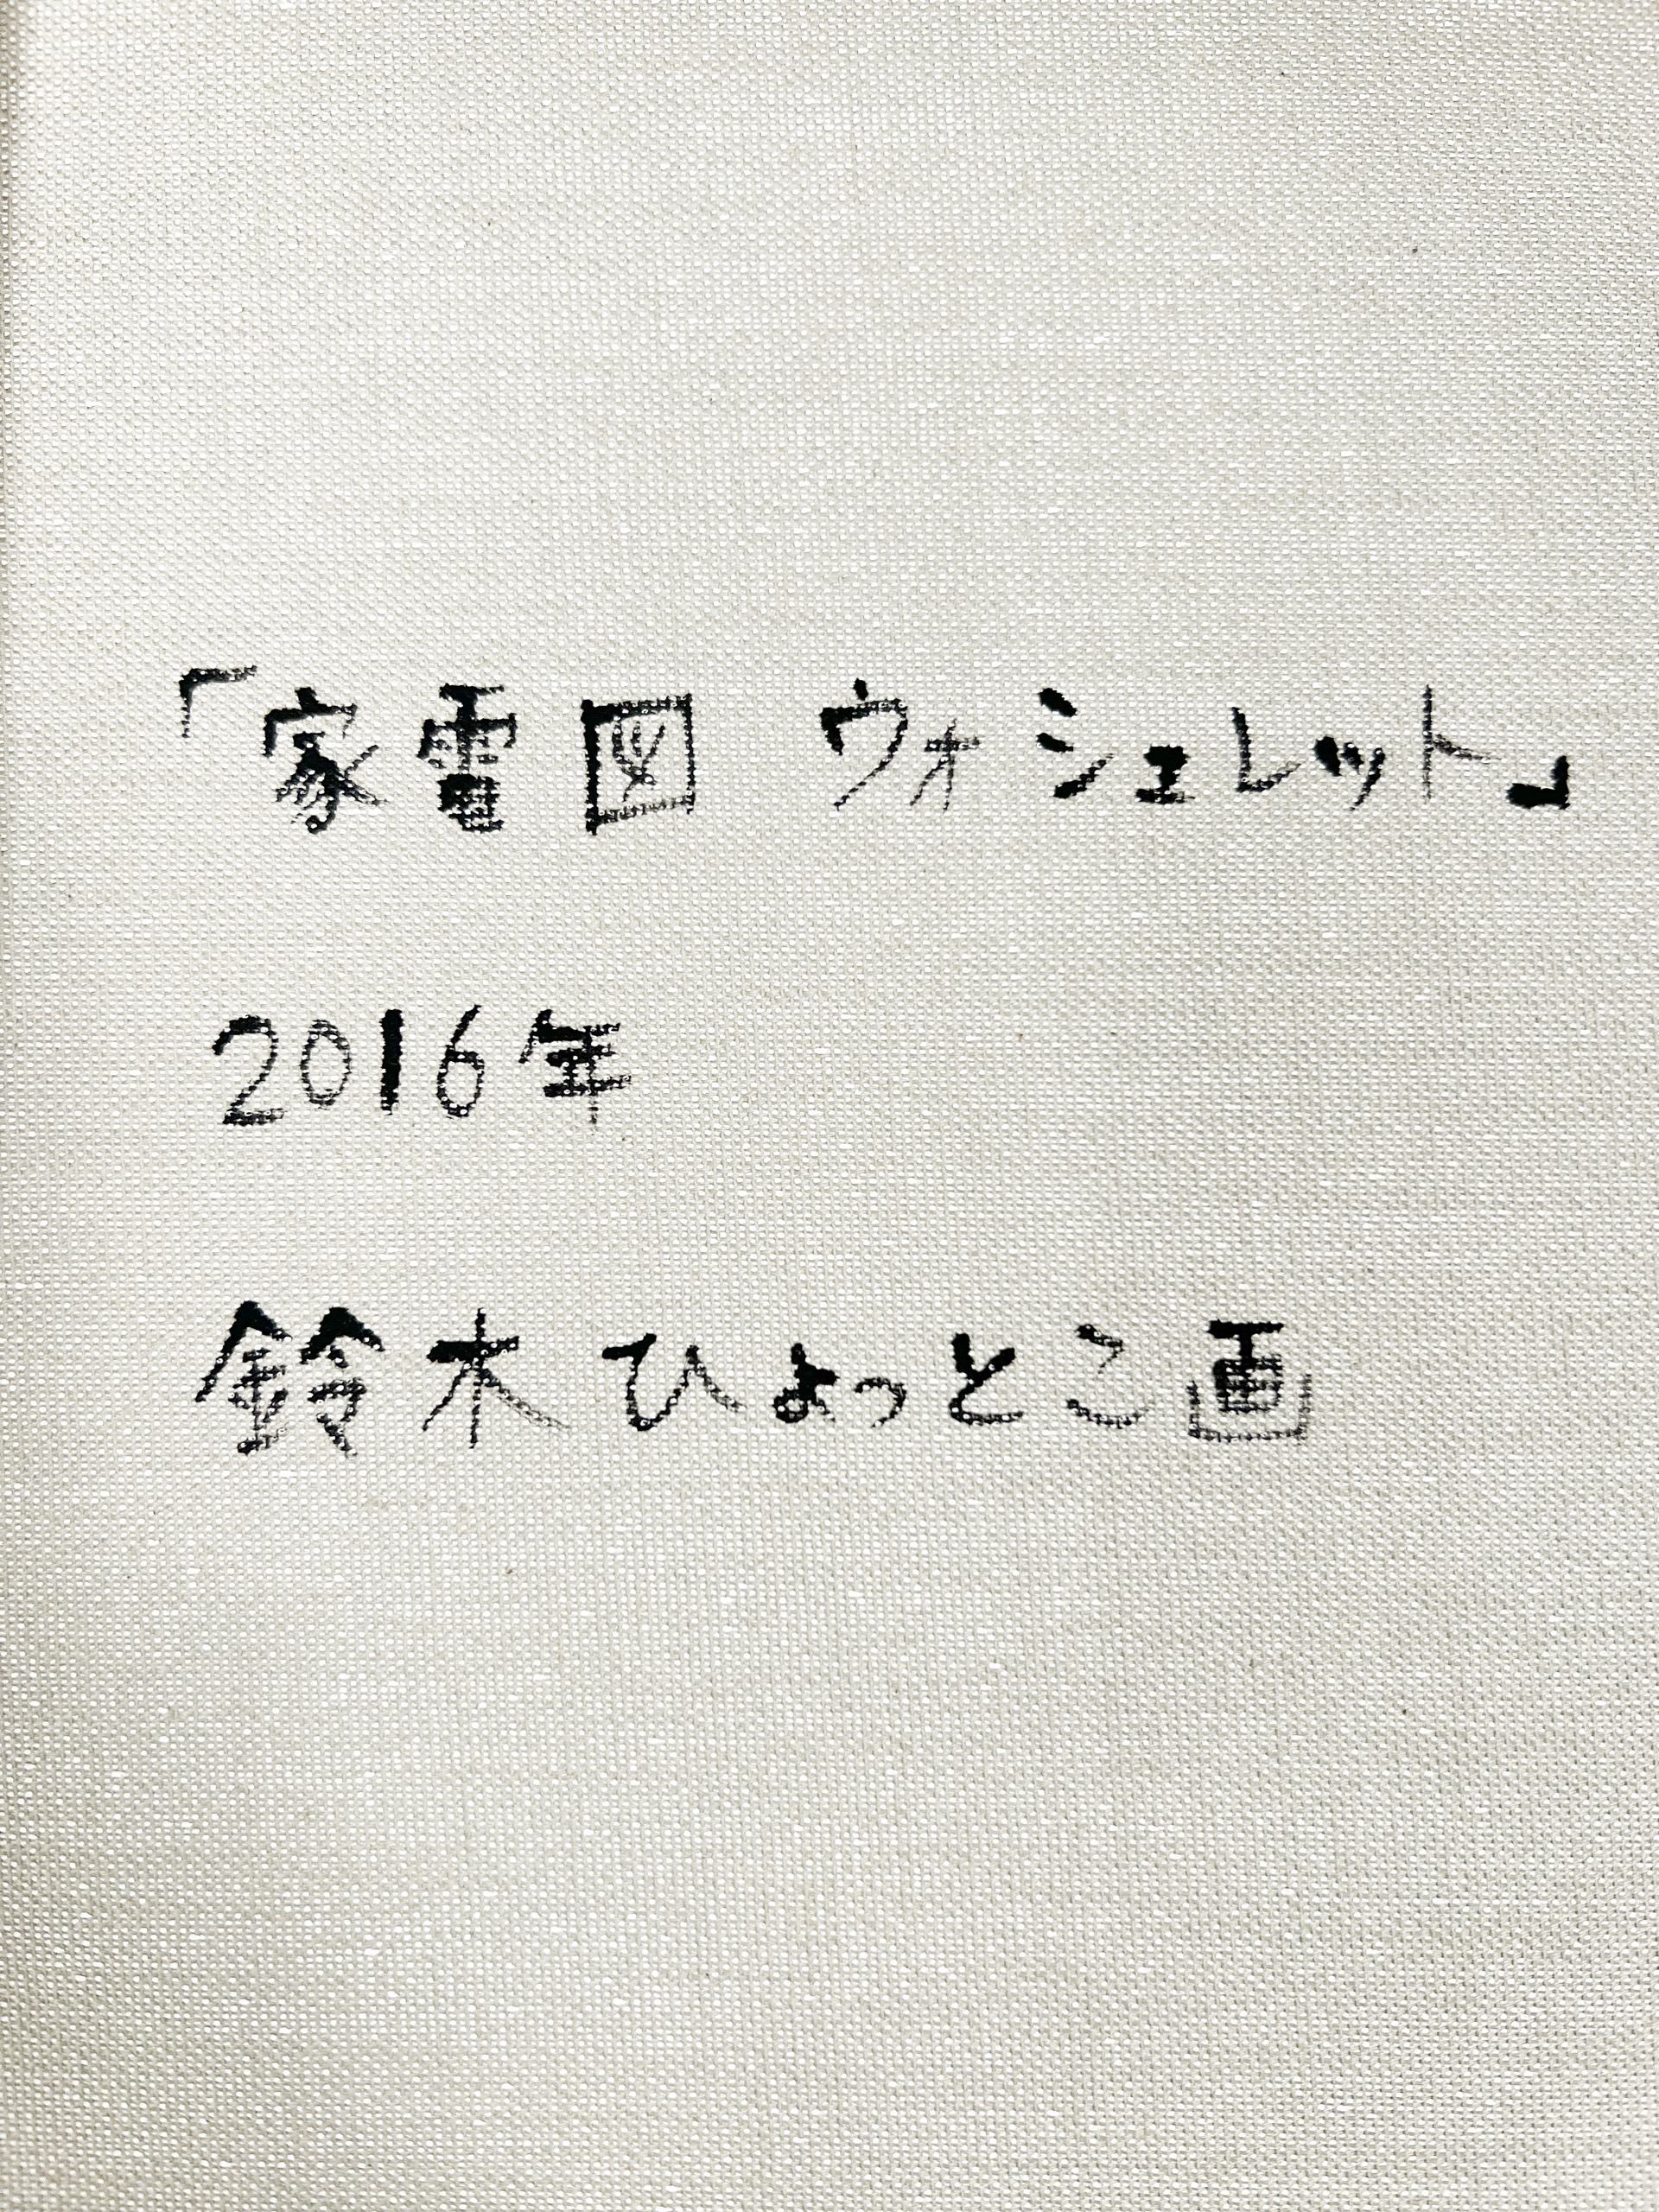 「家電図 ウォシュレット」
2016年
鈴木ひょっとこ画